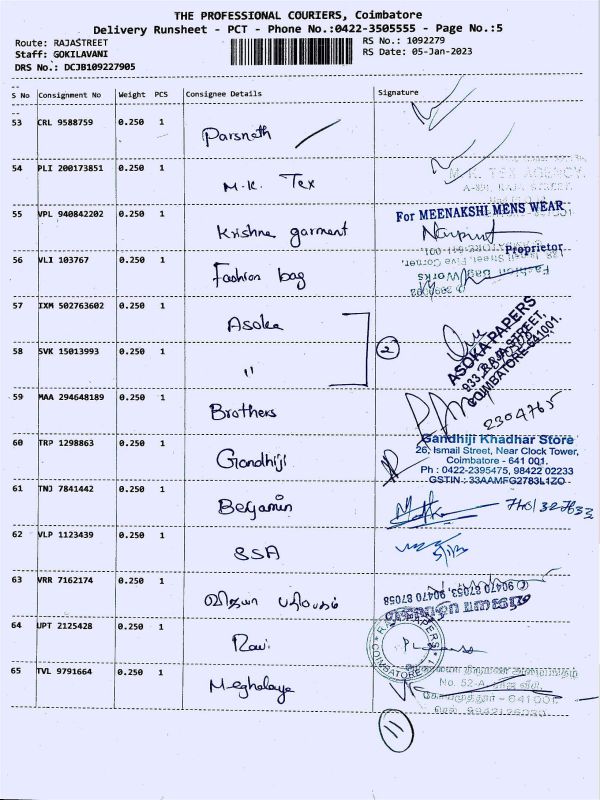 THE PROFESSIONAL COURIERS, Coimbatore
Delivery Runsheet - PCT - Phone No.:0422-3505555 - Page No.:5
Route: RAJASTREET
Staff: GOKILAVANI
DRS No.: DCJB109227905
RS No.: 1092279
RS Date: 05-Jan-2023
S No Consignment No Weight PCS Consignee Details Signature
53 CRL 9588759 0.250 1 Parsnath
54 PLI 200173851 0.250 1 M.K. Tex
M.K. TEX AGENCY
55 VPL 940842202 0.250 1 Krishna garment
For MEENAKSHI MENS WEAR
Proprietor
56 VLI 103767 0.250 1 Fashion bag
Fashion Bag Works
57 IXM 502763602 0.250 1 Asoka
58 SVK 15013993 0.250 1 "
2
ASOKA PAPERS
933, RAJA STREET,
COIMBATORE-641001.
59 MAA 294648189 0.250 1 Brothers
2304765
60 TRP 1298863 0.250 1 Gandhiji
Gandhiji Khadhar Store
26, Ismail Street, Near Clock Tower,
Coimbatore - 641 001.
Ph : 0422-2395475, 98422 02233
GSTIN : 33AAMFG2783L1ZO
61 TNJ 7841442 0.250 1 Benjamin
62 VLP 1123439 0.250 1 SSA
63 VRR 7162174 0.250 1 விஜயா பதிப்பகம்
90470 87053, 90470 87058
64 UPT 2125428 0.250 1 Ravi
COIMBATORE - 1
65 TVL 9791664 0.250 1 Meghalaya
No. 52-A, ராஜ வீதி,
கோயமுத்தூர் - 641 001.
11